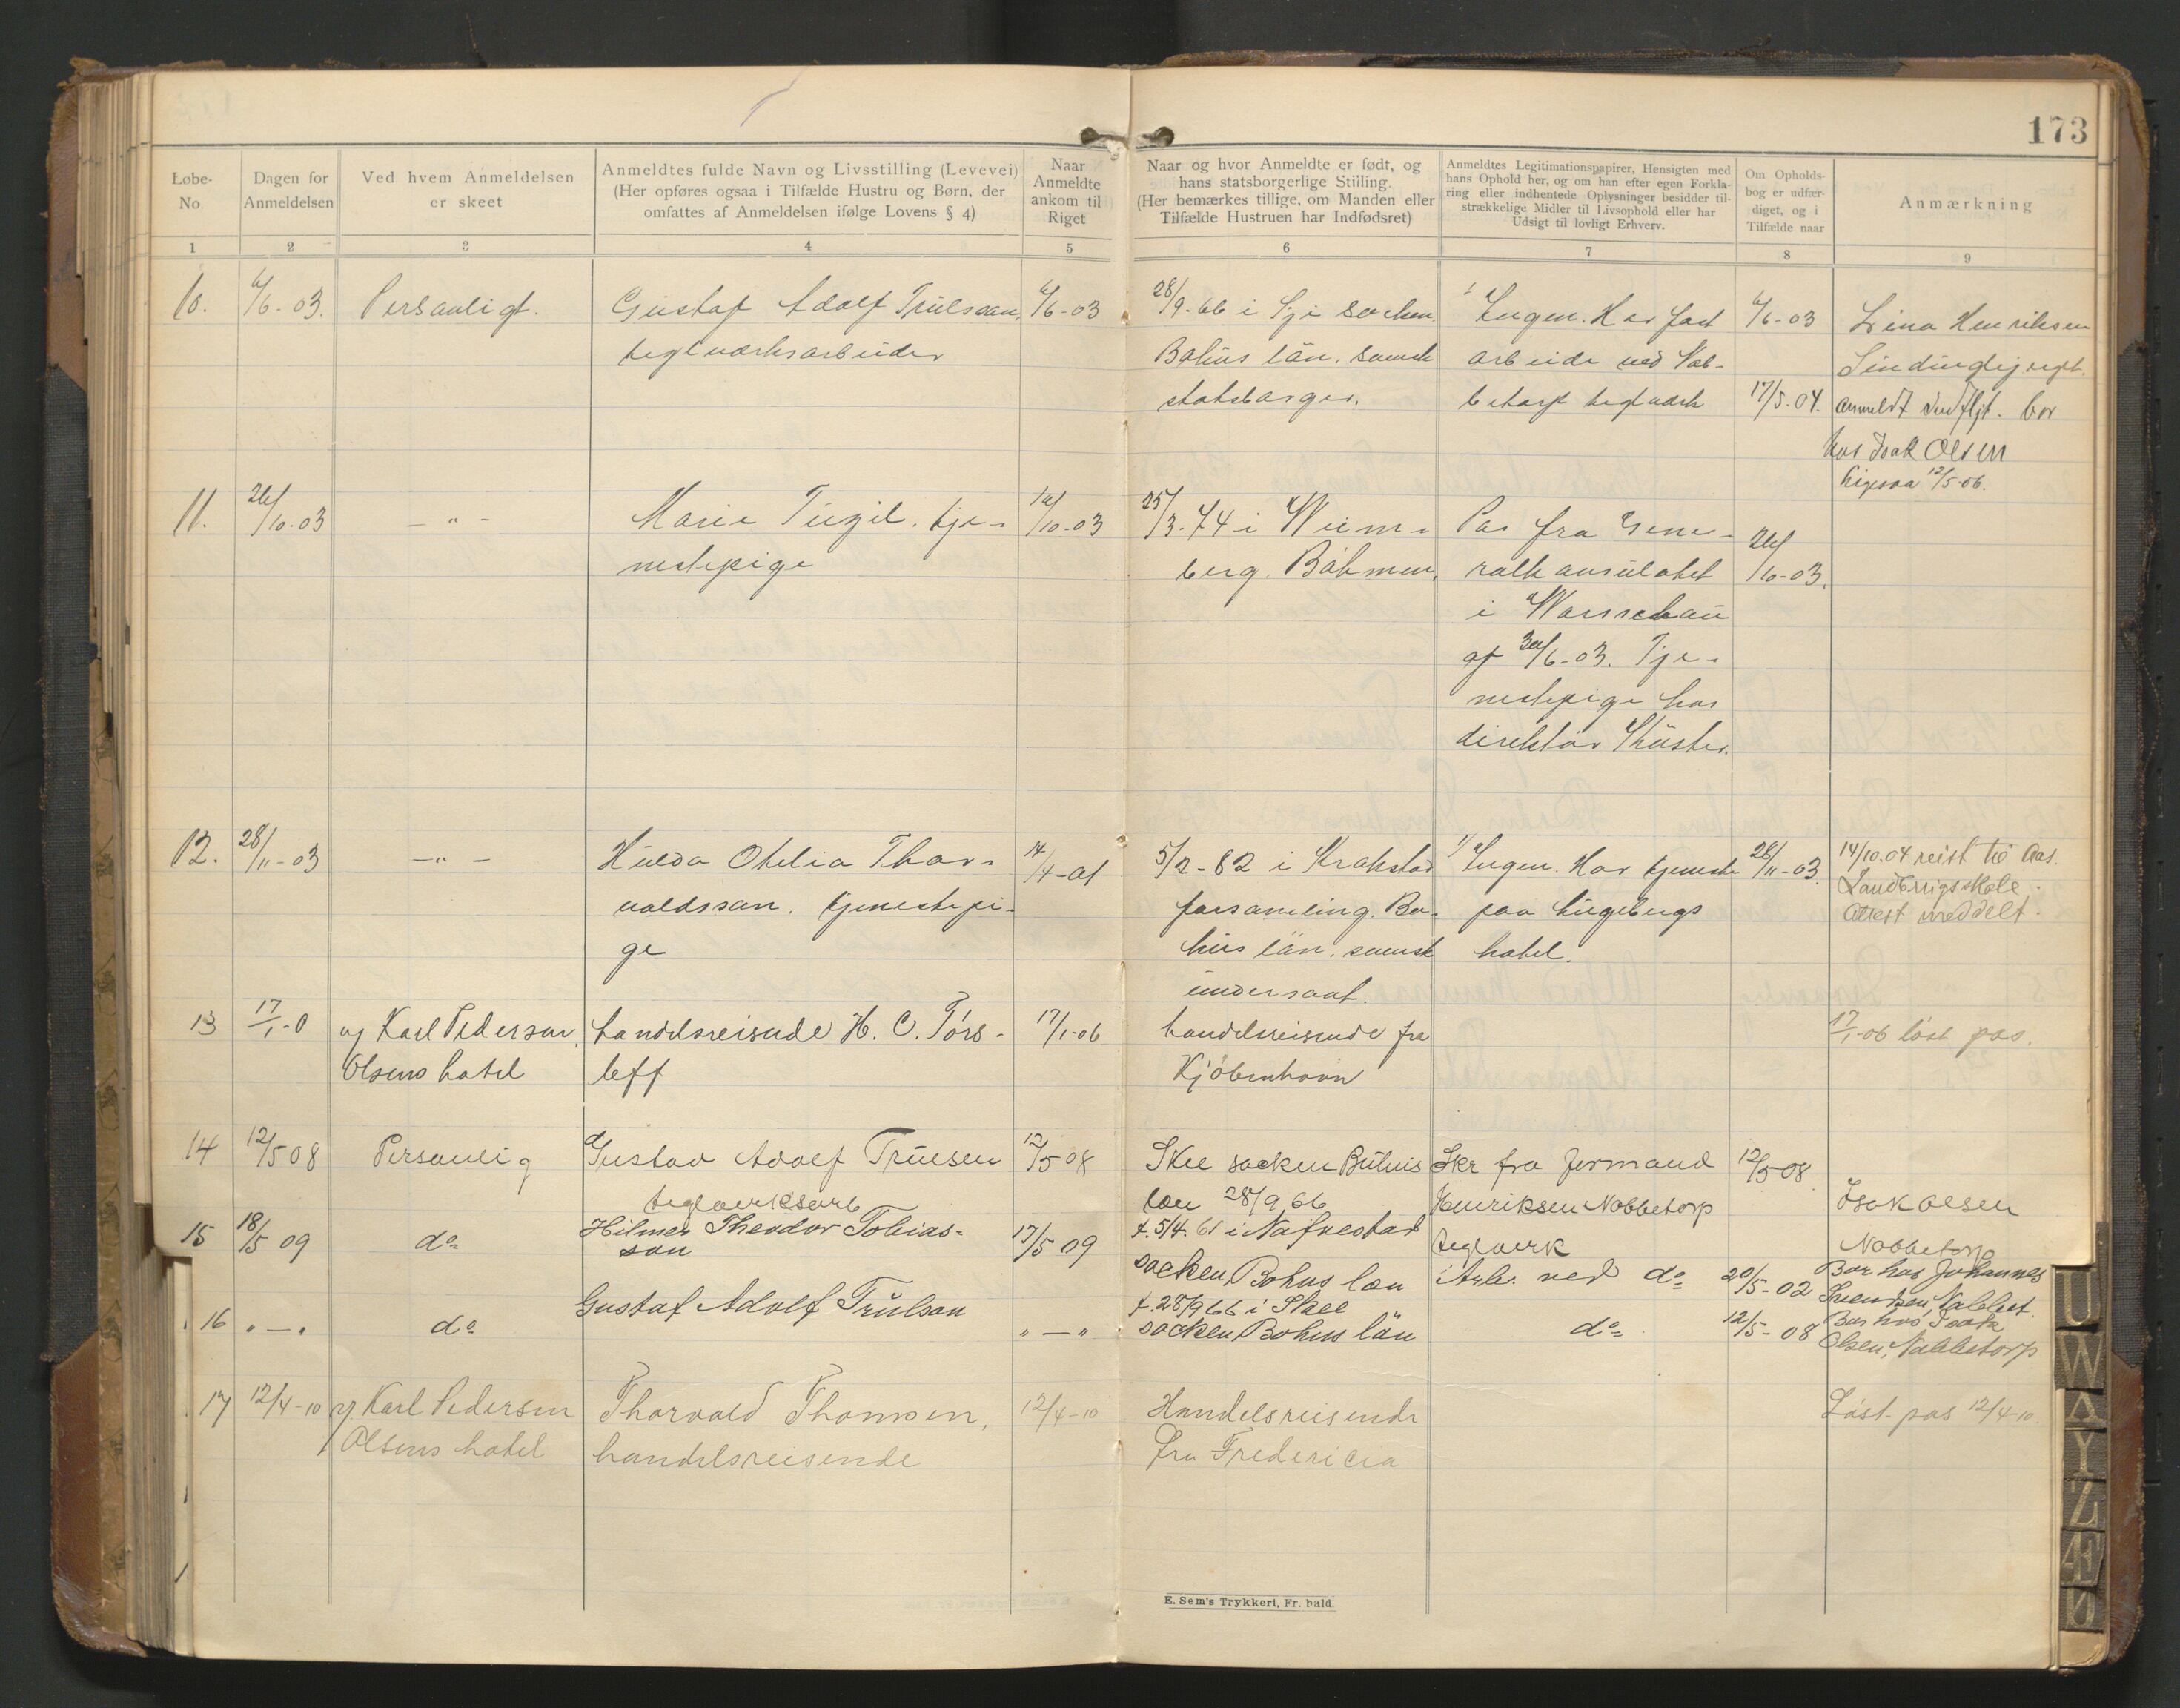 173
Løbe-No.
Dagen for Anmeldelsen
Ved hvem Anmeldelsen er skeet
Anmeldtes fulde Navn og Livsstilling (Levevei)
(Her opføres ogsaa i Tilfælde Hustru og Børn, der
omfattes af Anmeldelsen ifølge Lovens § 4)
Naar Anmeldte ankom til Riget
Naar og hvor Anmeldte er født, og
hans statsborgerlige Stiiling.
(Her bemærkes tillige, om Manden eller
Tilfælde Hustruen har Indfødsret)
Anmeldtes Legitimationspapirer, Hensigten med
hans Ophold her, og om han efter egen Forkla-
ring eller indhentede Oplysninger besidder til-
strækkelige Midler til Livsophold eller har
Udsigt til lovligt Erhverv.
Om Opholds-
bog er udfær-
diget, og i
Tilfælde naar
Anmærkning
1 2 3 4 5 6 7 8 9
10. 6/6-03. Personligt. Gustaf Adolf Trulsson, 6/6-03 28/9-66 i socken Ingen. Har fast 6/6-03 Lina Henriksen
teglværksarbeider Bohus län. svensk arbeide ved Nab-
statsborger. betorp teglværk 17/5.04. anmeldt bor
hos Isak Olsen
ligesaa 12/5-06.
11. 26/10-03 -"- Marie tje- 10-03 25/3-74 i Pas fra Gene- 26/10-03.
nestepige berg. Böhmen. ralkonsulatet
i Warschau
af 30/6-03. Tje-
nestepige hos
direktör
12. 28/11-03 -"- Hulda Otelia Thor- 14/4-01 5/2-82 i Krokstad Ingen. Har tjeneste 28/11-03. 14/10.04 reist til Aas.
valdsson. tjenestepi- forsamling. Bo- paa Lügebergs Landbrugsskole.
ge hus län. svensk hotel. Attest meddelt.
undersaat.
13 17/1-0 v/ Karl Pedersen, handelsreisende H. C. Törs- 17/1-06 handelsreisende fra 17/1-06 löst pas.
Olsens hotel leff Kjöbenhavn
14 12/5 08 Personlig Gustav Adolf Trulsen 12/5 08 Skee socken Buhus Skr fra formand 12/5-08
teglverksarb län 28/9 66 Henriksen Nabbetorp Isak Olsen
teglverk Nabbetorp
15 18/5 09 do Hilmer Theodor Tobias- 17/5 09 f. 5/4. 61 i Nafvestad
son socken, Bohus län i Arb. ved do 20/5-02 Bor hos Johannes
Svendsen, Nabbet.
16 "—" do Gustaf Adolf Trulson "—" f. 28/9 66 i Skee
socken, Bohus län do 12/5-08 Bor hos Isak
Olsen, Nabbetorp
17 12/4-10 v/ Karl Pedersen Thorvald Thomsen, 12/4-10 Handelsreisende Löst pas 12/4-10.
Olsens hotel handelsreisende fra Fredericia
E. Sem's Trykkeri, Fr. hald.
U
W
Y
Z
Æ
Ø